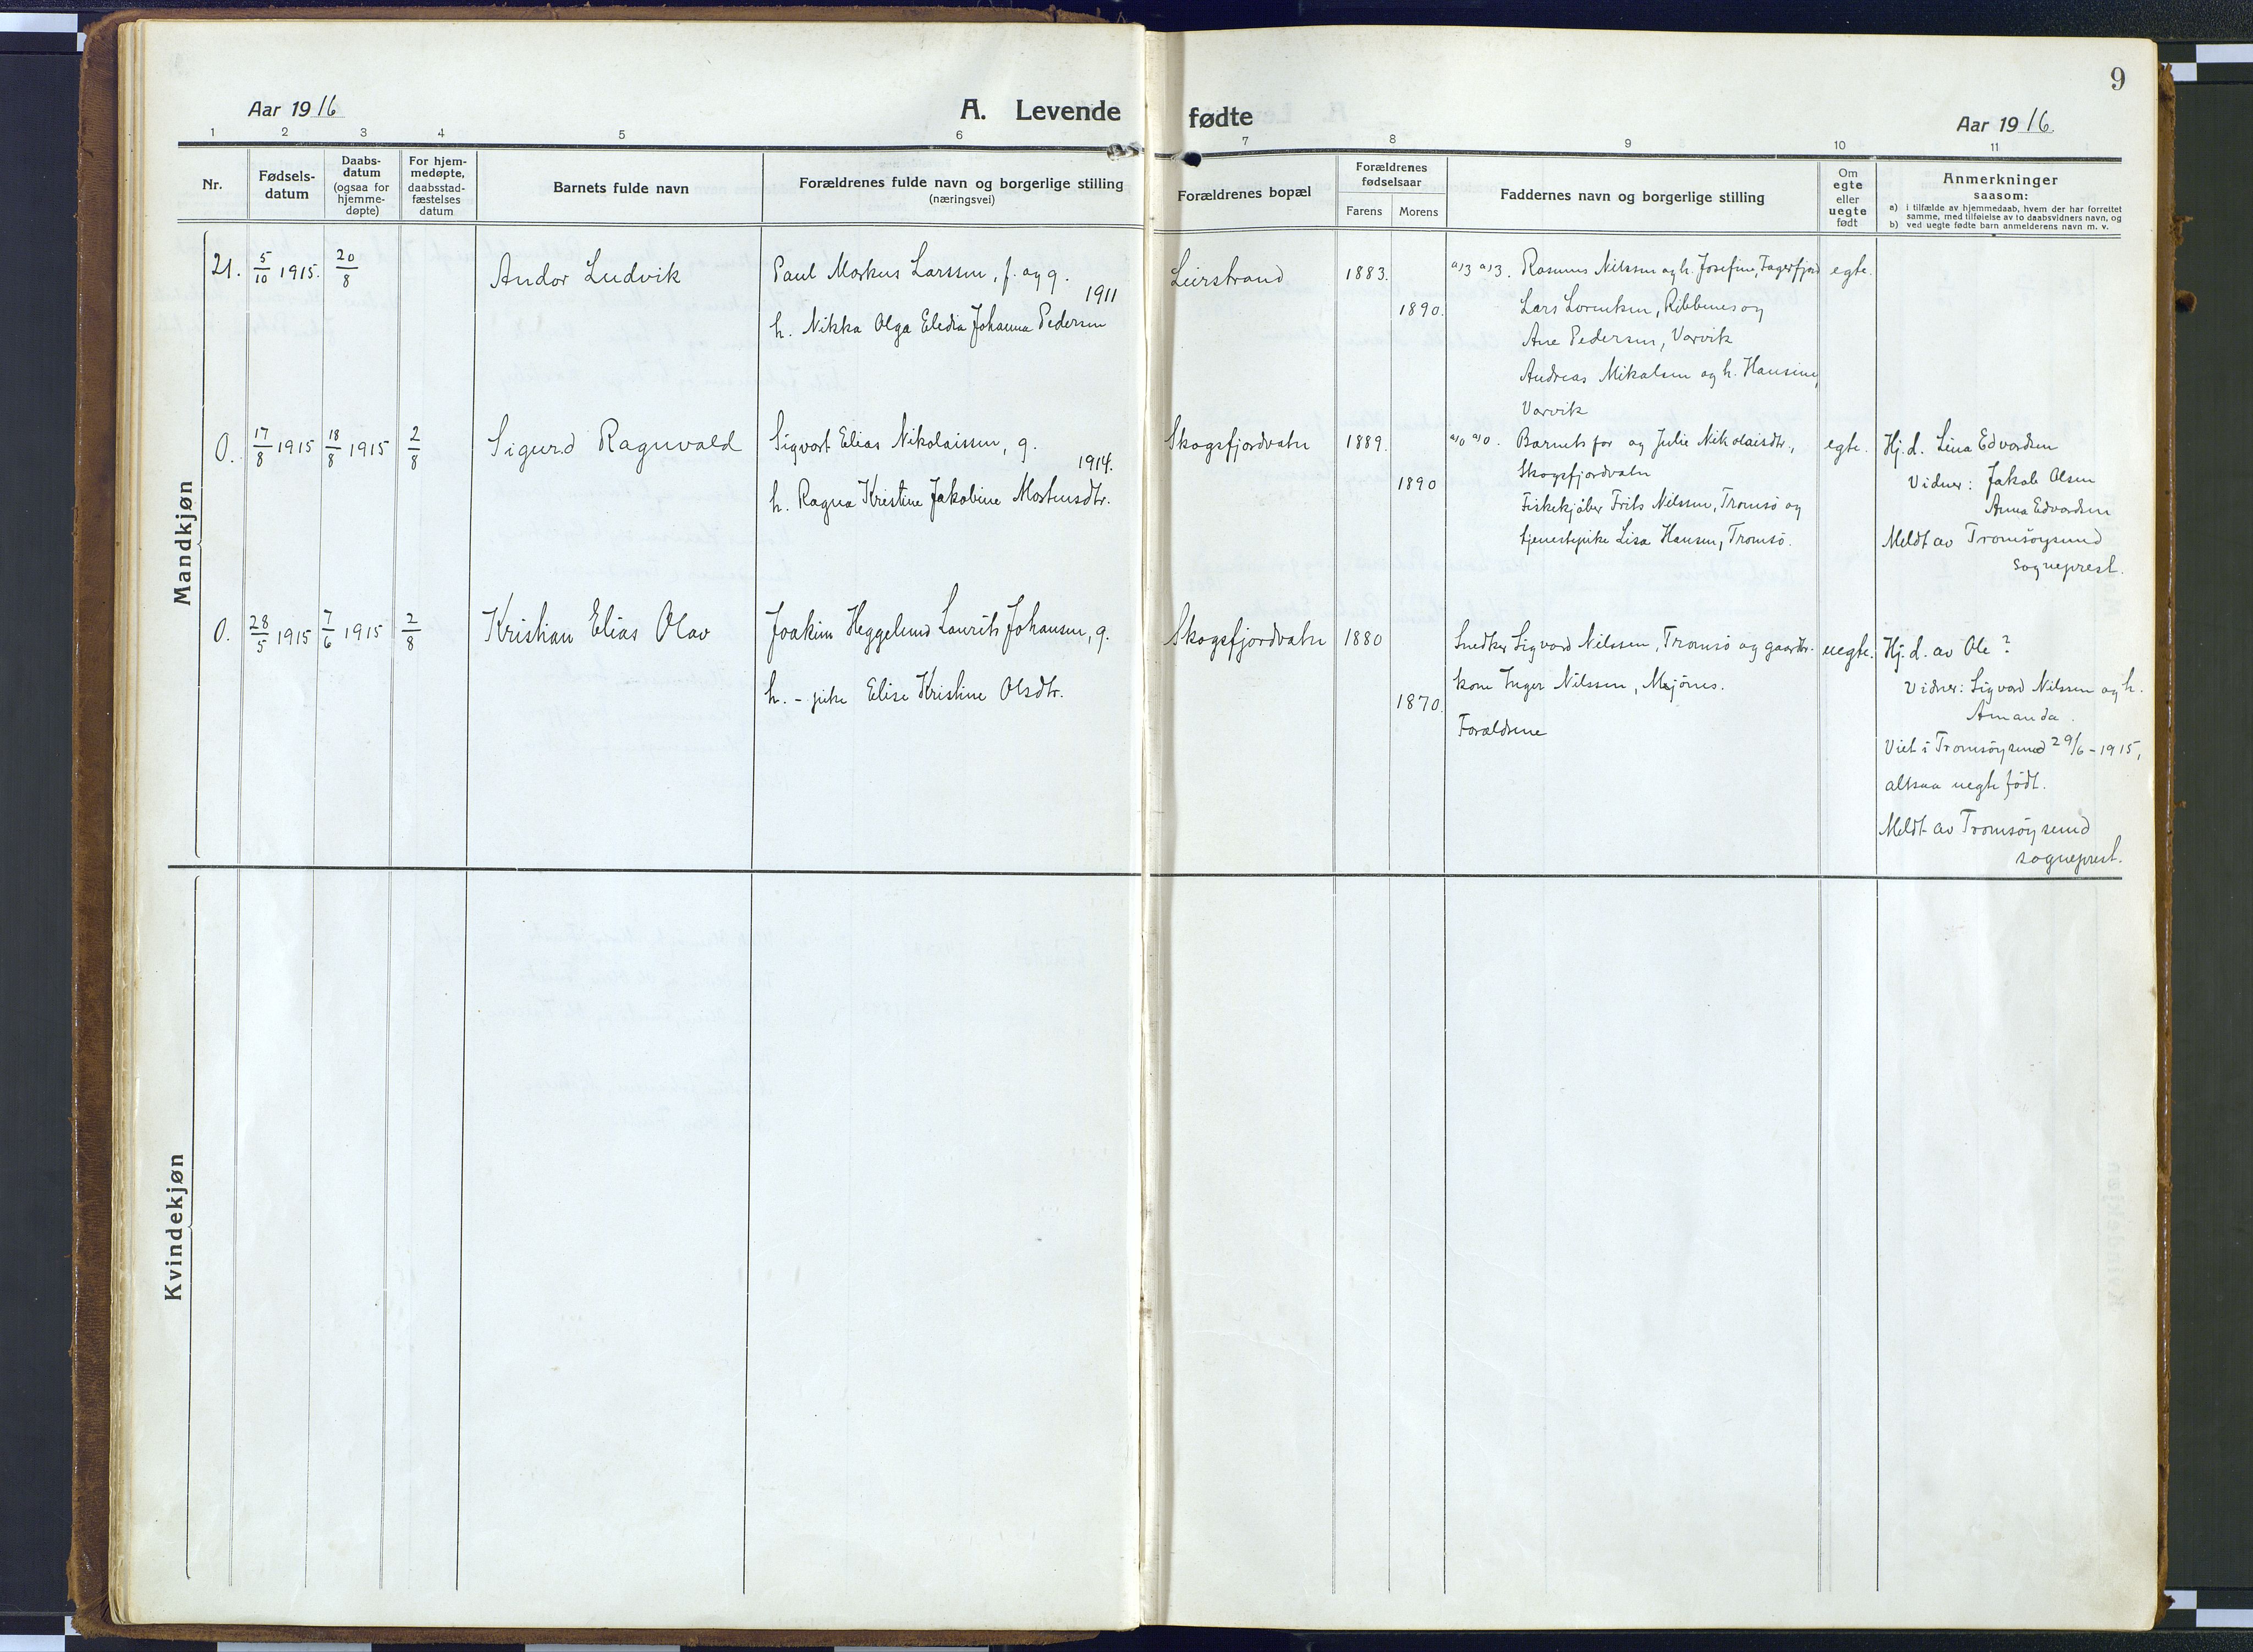 9
Aar 1916
A. Levende fødte
Aar 1916.
1 2 3 4 5 6 7 8 9 10 11
Nr.
Fødsels-
datum
Daabs-
datum
(ogsaa for
hjemme-
døpte)
For hjem-
medøpte,
daabsstad-
fæstelses
datum
Barnets fulde navn
Forældrenes fulde navn og borgerlige stilling
(næringsvei)
Forældrenes bopæl
Forældrenes
fødselsaar
Farens Morens
Faddernes navn og borgerlige stilling
Om
egte
eller
uegte
født
Anmerkninger
saasom:
a) i tilfælde av hjemmedaab, hvem der har forrettet
samme, med tilføielse av to daabsvidners navn, og
b) ved uegte fødte barn anmelderens navn m. v.
Mandkjøn
21. 5/10 1915. 20/8
Andor Ludvik
Paul Markus Larssen, f. og g.
1911
h. Nikka Olga Eledia Johanna Pedersen
Leirstrand
1883.
1890.
a13 a13. Rasmus Nilssen og h. Josefine, Fagerfjord
Lars Lorentsen, Ribbenes og
Ane Pedersen, Varvik
Andreas Mikalsen og h. Hansine,
Varvik
egte.
0. 17/8 1915 18/8 1915 2/8
Sigurd Ragnvald
Sigvart Elias Nikolaissen, g.
1914.
h. Ragna Kristine Jakobine Mortensdtr.
Skogsfjordvatn
1889.
1890
a10 a10. Barnets far og Julie Nikolaisdtr.,
Skogsfjordvatn
Fiskekjøber Frits Nilssen, Tromsö og
tjenestepike Lisa Hansen, Tromsö.
egte.
Hj. d. Lina Edvardsen
Vidner: Jakob Olsen
Anna Edvardsen
Meldt av Tromsöysund
sogneprest.
0. 28/5 1915 7/6 1915 2/8
Kristian Elias Olav
Joakim Heggelund Laurits Johansen, g.
h. - pike Elise Kristine Olsdtr.
Skogsfjordvatn
1880
1870.
Snedker Sigvard Nilssen, Tromsö og gaardbr.
kone Inger Nilssen, Mjönes.
Forældrene
uegte.
Hj. d. av Ole ?
Vidner: Sigvard Nilssen og h.
Amanda.
Viet i Tromsöysund 29/6 - 1915,
altsaa uegte födt.
Meldt av Tromsöysund
sogneprest.
Kvindekjøn